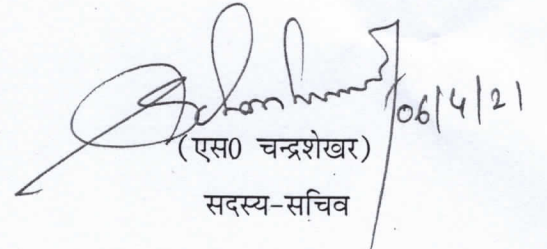 06/4/21
(एस0 चन्द्रशेखर)
सदस्य-सचिव